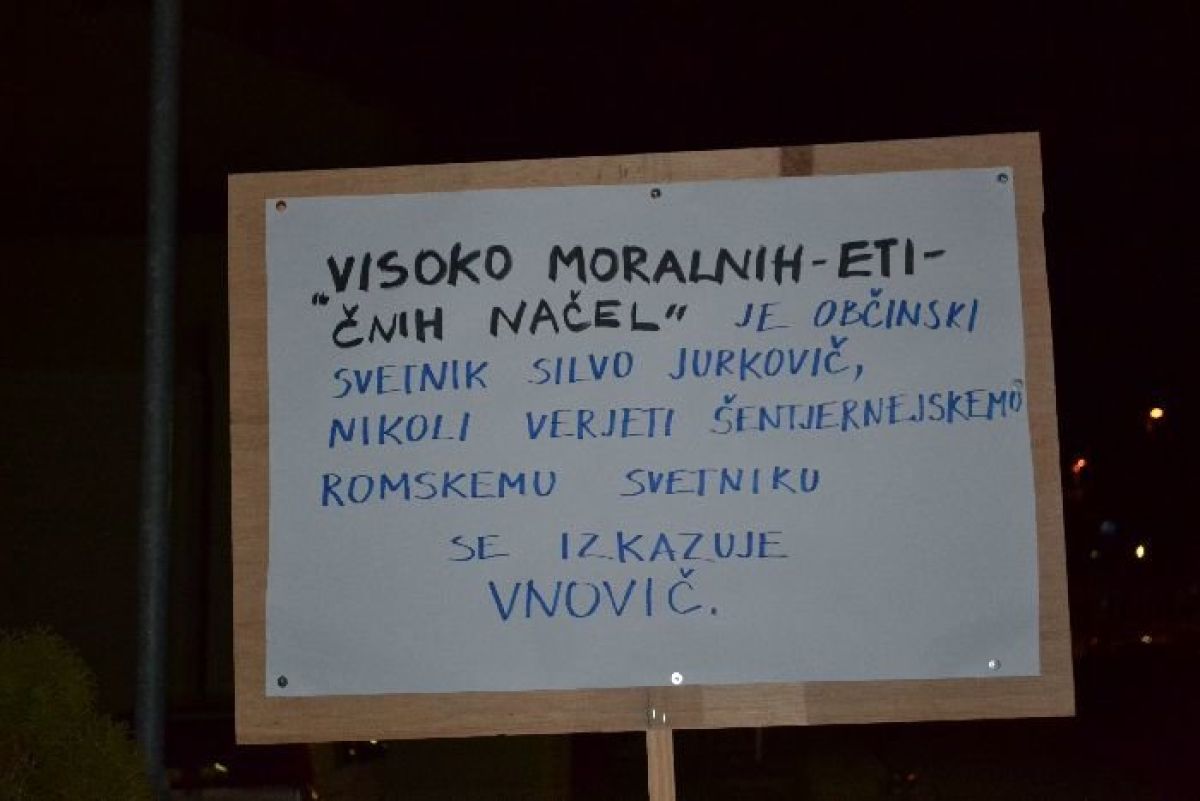 "VISOKO MORALNIH-ETI-
ČNIH NAČEL" JE OBČINSKI
SVETNIK SILVO JURKOVIČ,
NIKOLI VERJETI ŠENTJERNEJSKEMU
ROMSKEMU SVETNIKU
SE IZKAZUJE
VNOVIČ.